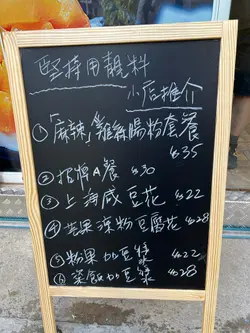 堅持用靚料
小店推介
①「麻辣」雞絲腸粉套餐
$35
②招牌A餐 $30
③上海咸豆花 $22
④芒果涼粉豆腐花 $28
⑤粉果加豆漿 $22
⑥菜飯加豆漿 $28